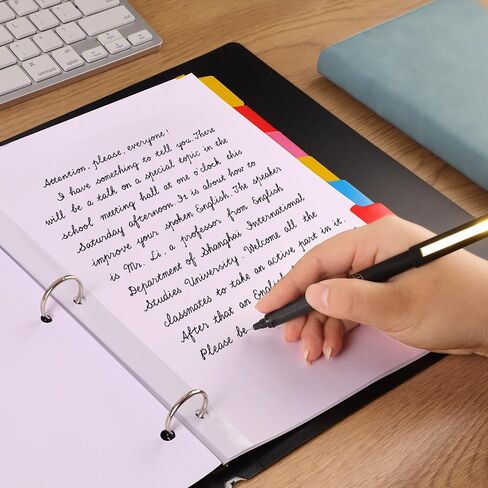 Attention, please, everyone!
I have something to tell you. There
will be a talk on a special topic in the
school meeting hall at one o'clock this
Saturday afternoon. It is about how to
improve your spoken English. The speaker
is Mr. Li, a professor from English
Department of Shanghai International
Studies University. Welcome all the
classmates to take an active part in it.
After that an English
Please be